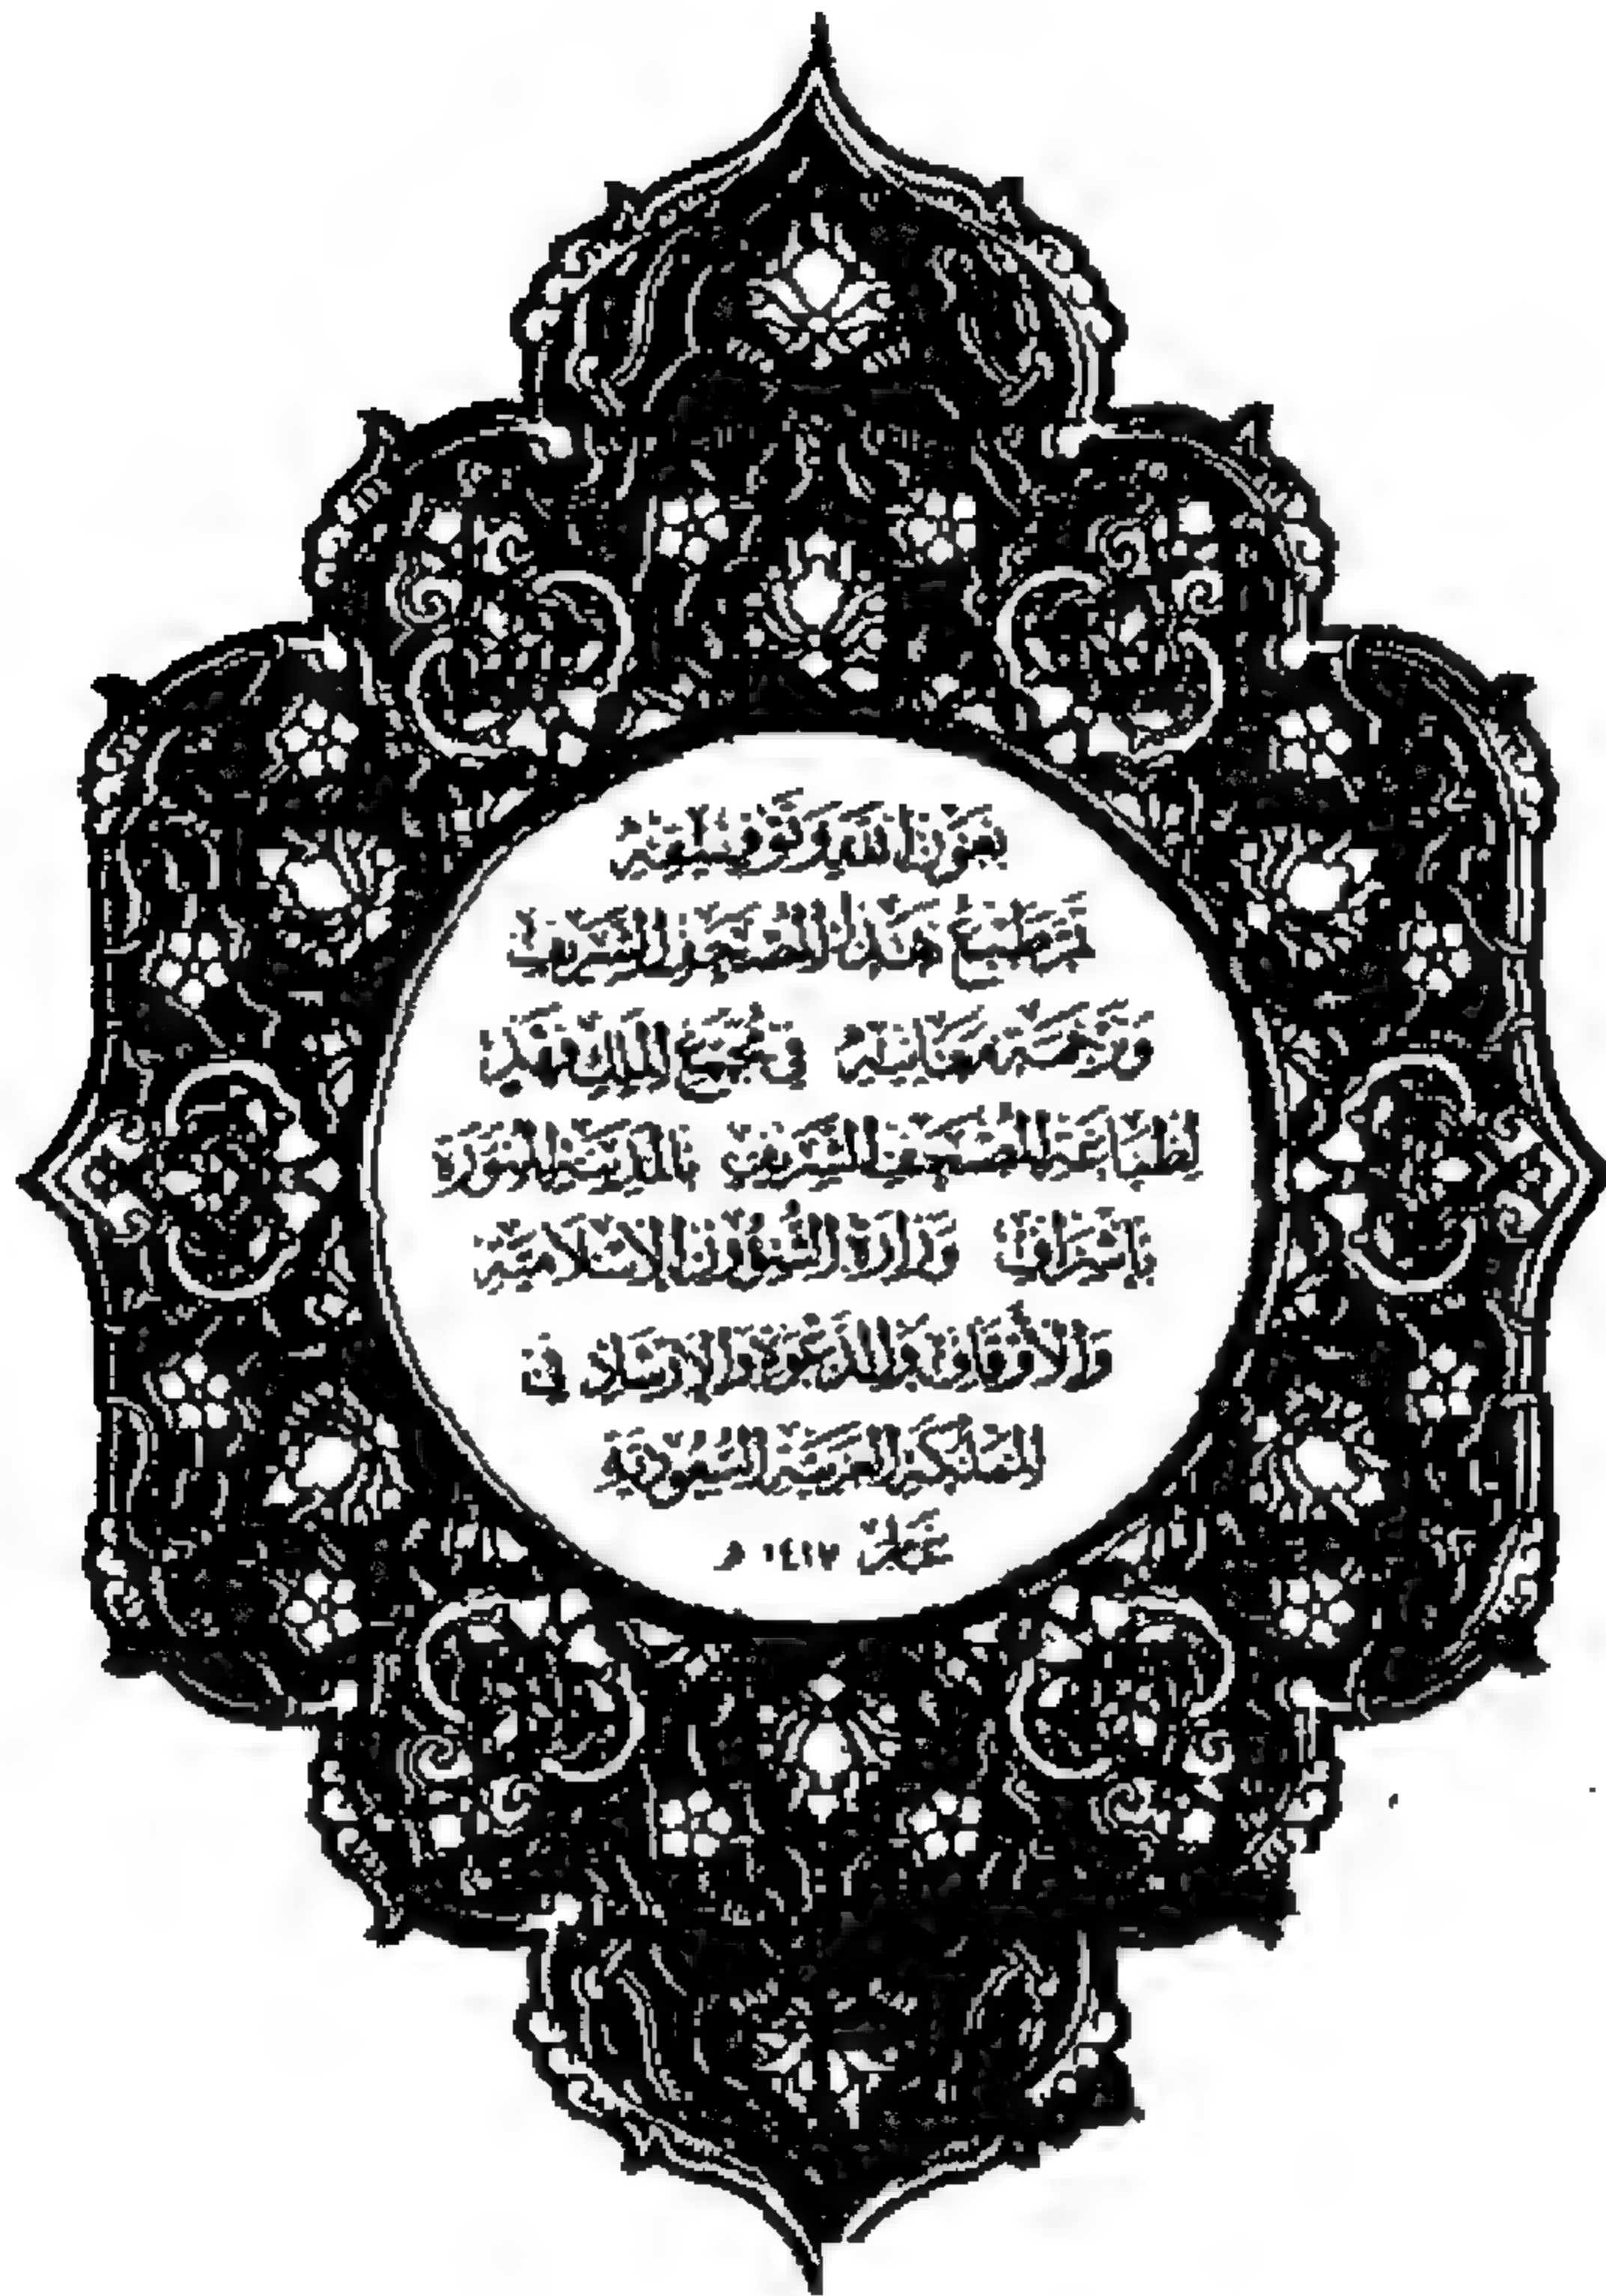 بعون الله وتوفيقه
تم طبع هذا المصحف الشريف
وترجمة معانيه في مجمع الملك فهد
لطباعة المصحف الشريف بالمدينة المنورة
بإشراف وزارة الشؤون الإسلامية
والأوقاف والدعوة والإرشاد في
المملكة العربية السعودية
عام ١٤١٧ هـ